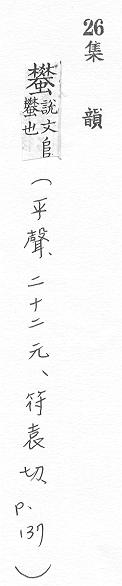 26 集韻
蠜 說文𨸏蠜也
（平聲、二十二元、符袁切、p.137）